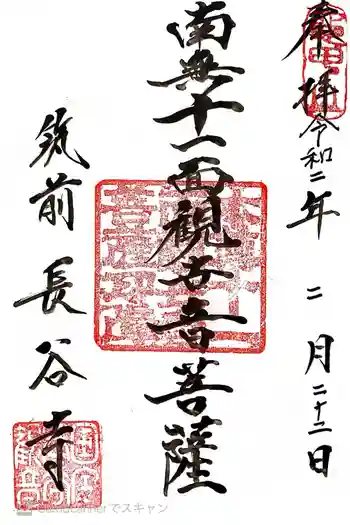 奉拝 令和二年 二月二十二日
南無十一面観世音菩薩
筑前 長谷寺